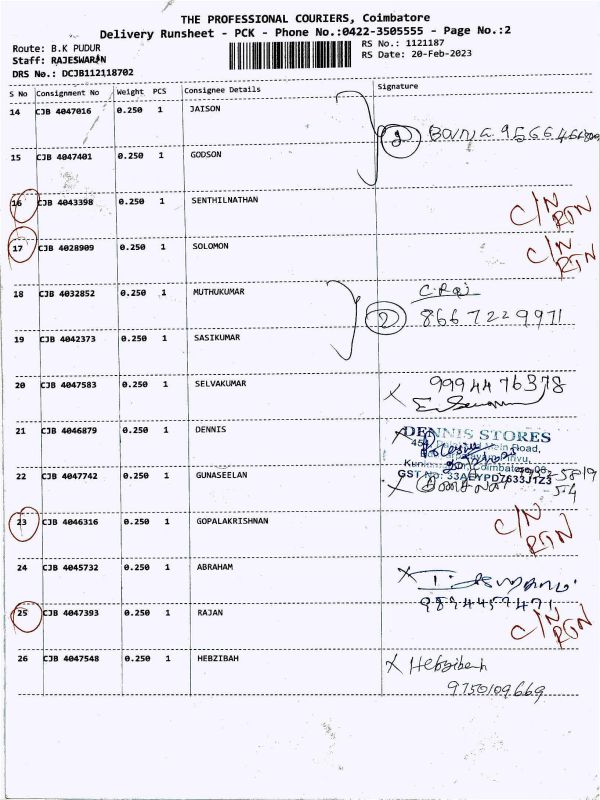 THE PROFESSIONAL COURIERS, Coimbatore
Delivery Runsheet - PCK - Phone No.:0422-3505555 - Page No.:2
Route: B.K PUDUR
RS No.: 1121187
Staff: RAJESWARAN
RS Date: 20-Feb-2023
DRS No.: DCJB112118702
S No Consignment No Weight PCS Consignee Details Signature
14 CJB 4047016 0.250 1 JAISON
2
15 CJB 4047401 0.250 1 GODSON
16 CJB 4043398 0.250 1 SENTHILNATHAN C/N RTN
17 CJB 4028909 0.250 1 SOLOMON C/N RTN
18 CJB 4032852 0.250 1 MUTHUKUMAR
2 8667229971
19 CJB 4042373 0.250 1 SASIKUMAR
20 CJB 4047583 0.250 1 SELVAKUMAR X 9994476378
21 CJB 4046879 0.250 1 DENNIS X DENNIS STORES
Main Road,
Coimbatore-08
GST No: 33AEYPD7633J1Z3
22 CJB 4047742 0.250 1 GUNASEELAN X
23 CJB 4046316 0.250 1 GOPALAKRISHNAN C/N RTN
24 CJB 4045732 0.250 1 ABRAHAM X
9894459471
25 CJB 4047393 0.250 1 RAJAN C/N RTN
26 CJB 4047548 0.250 1 HEBZIBAH X Hebzibah
9750109669